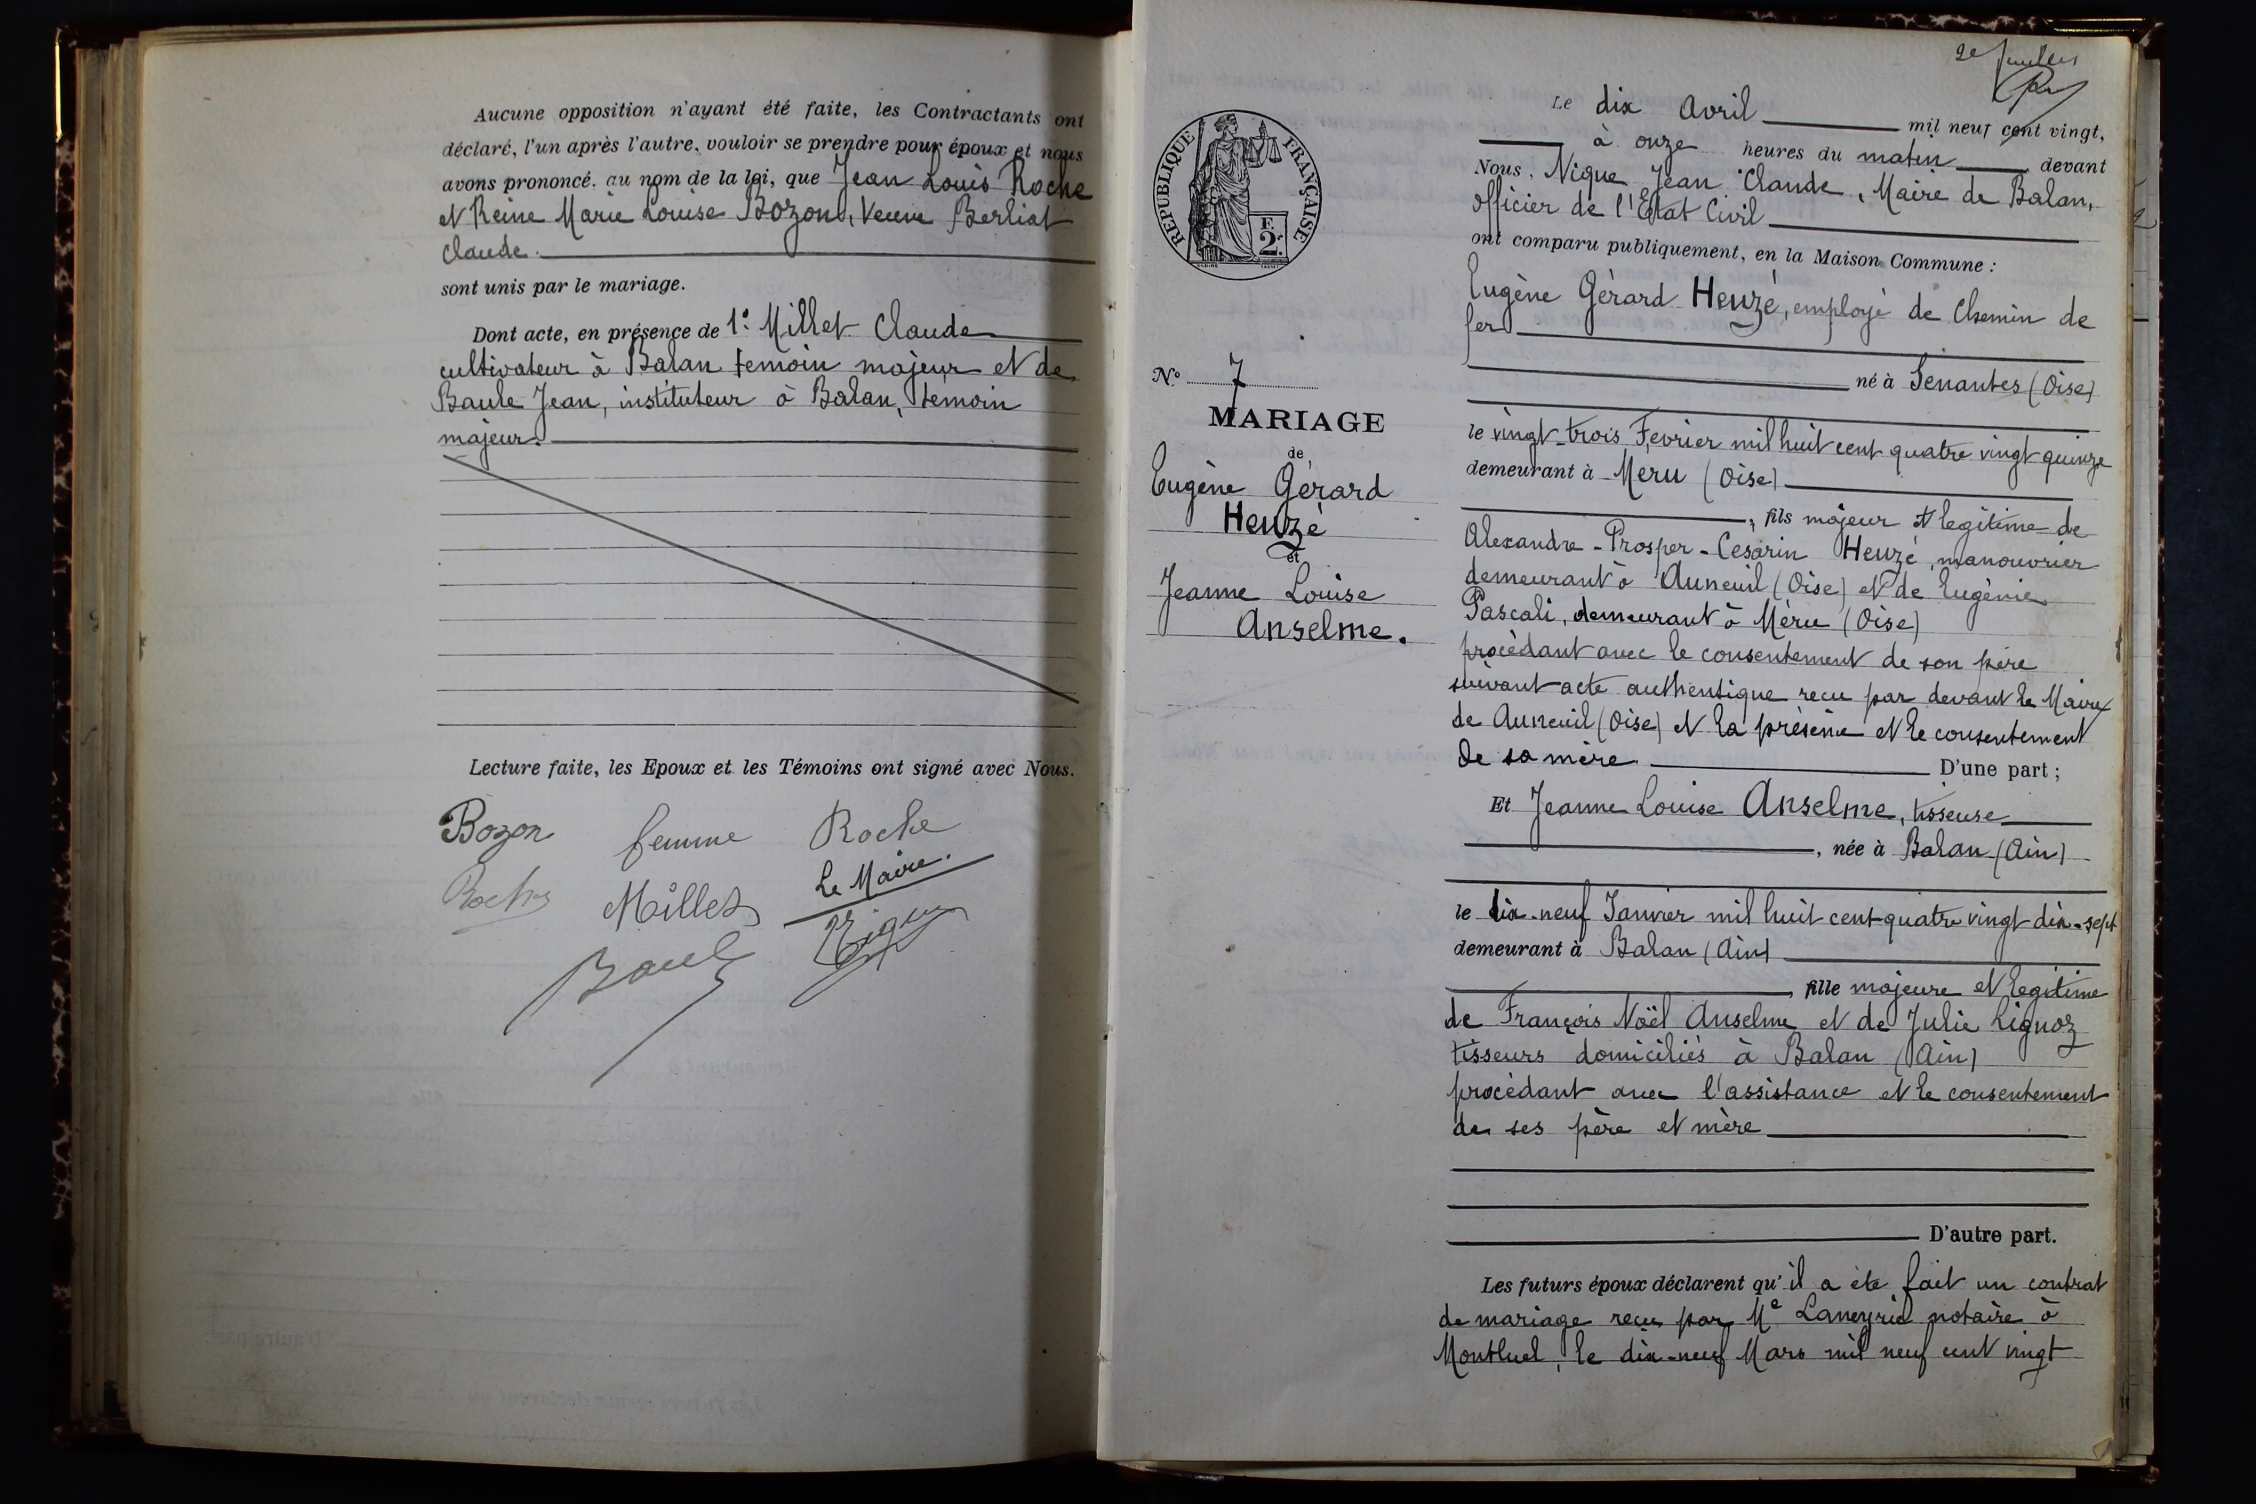 Aucune opposition n'ayant été faite, les Contractants ont
déclaré, l'un après l'autre, vouloir se prendre pour époux et nous
avons prononcé, au nom de la loi, que Jean Louis Roche
et Reine Marie Louise Bozon, Veuve Berliat
Claude.
sont unis par le mariage.
Dont acte, en présence de 1° Millet Claude
cultivateur à Balan temoin majeur et de
Baule Jean, instituteur à Balan, temoin
majeur.
Lecture faite, les Epoux et les Témoins ont signé avec Nous.
Bozon femme Roche
Roche Millet Le Maire.
Baule Nique
2e
RÉPUBLIQUE FRANÇAISE
2F
N° 7
MARIAGE
de
Eugène Gérard
Heuzé
et
Jeanne Louise
Anselme.
Le dix Avril mil neuf cent vingt,
à onze heures du matin devant
Nous, Nique Jean Claude, Maire de Balan,
officier de l'Etat Civil
ont comparu publiquement, en la Maison Commune :
Eugène Gérard Heuzé, employé de Chemin de
fer
né à Senantes (Oise)
le vingt-trois Fevrier mil huit cent quatre vingt quinze
demeurant à Meru (Oise)
, fils majeur et legitime de
Alexandre-Prosper-Cesarin Heuzé, manouvrier
demeurant à Auneuil (Oise) et de Eugénie
Pascali, demeurant à Méru (Oise)
procèdant avec le consentement de son père
suivant acte authentique recu par devant le Maire
de Auneuil (Oise) et la présence et le consentement
de sa mère D'une part ;
Et Jeanne Louise Anselme, tisseuse
, née à Balan (Ain)
le dix-neuf Janvier mil huit cent quatre vingt dix-sept
demeurant à Balan (Ain)
, fille majeure et legitime
de François Noël Anselme et de Julie Lignoz
tisseurs domiciliés à Balan (Ain)
procèdant avec l'assistance et le consentement
de ses père et mère
D'autre part.
Les futurs époux déclarent qu'il a éte fait un contrat
de mariage reçu par Me Laneyrie notaire à
Montluel, le dix-neuf Mars mil neuf cent vingt